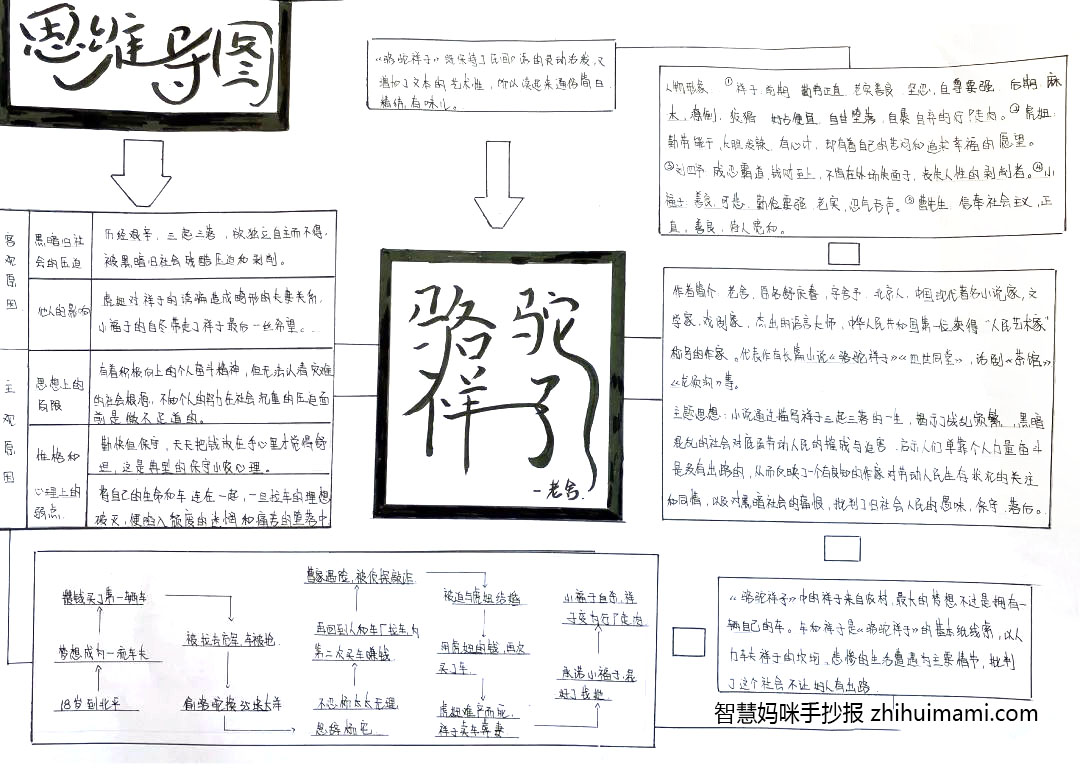 思维导图
《骆驼祥子》既保持了民间口语的灵动活泼,又
增加了文本的艺术性,所以读起来通俗简白
精俏,有味儿。
人物形象:①祥子:前期 勤劳正直 老实善良 坚忍,自尊要强 后期 麻
木,潦倒,狡猾 好占便宜 自甘堕落,自暴自弃的行尸走肉。②虎妞:
有心计,却有着自己的苦闷和追求幸福的愿望。
③刘四爷 成恶霸道,钱财至上,不肯在外场失面子,丧失人性的剥削者。④小
福子:善良,可悲 勤俭要强 老实,忍气吞声。⑤曹先生 信奉社会主义,正
直,善良,待人宽和。
客观原因
黑暗旧社
会的压迫
历经艰辛,三起三落,欲独立自主而不得,
被黑暗旧社会残酷压迫和剥削。
他人的影响
虎妞对祥子的诱骗造成畸形的夫妻关系,
小福子的自尽带走了祥子最后一丝希望。
主观原因
思想上的
局限
有着积极向上的个人奋斗精神,但无法认清灾难
的社会根源,不知个人的努力在社会沉重的压迫面
前是微不足道的。
性格和
心理上的
弱点
勤快但保守,天天把钱放在手心里才觉得舒
坦,这是典型的保守小农心理。
着自己的生命和车连在一起,一旦拉车的理想
破灭,便陷入颓废的迷惘和痛苦的堕落中
骆驼
祥子
-老舍.
作者简介:老舍,原名舒庆春,字舍予 北京人,中国现代著名小说家,文
学家,戏剧家,杰出的语言大师,中华人民共和国第一位获得“人民艺术家”
称号的作家。代表作有长篇小说《骆驼祥子》《四世同堂》,话剧《茶馆》
《龙须沟》等。
主题思想:小说通过描写祥子三起三落的一生,揭示了战乱频繁,黑暗
混乱的社会对底层劳动人民的摧残与迫害 启示人们单靠个人力量奋斗
是没有出路的,从而反映了一个有良知的作家对劳动人民生存状况的关注
和同情,以及对黑暗社会的痛恨,批判了旧社会人民的愚昧,保守,落后。
攒钱买了第一辆车
梦想成为一流车夫
18岁到北平
被拉去充军,车被抢
偷骆驼换35块大洋
曹家遇险,被侦探敲诈
再回到人和车厂拉车,为
第二次买车赚钱
不忍杨太太无理,
愤辞杨宅
被迫与虎妞结婚
用虎妞的钱,再次
买了车
虎妞难产而死
祥子卖车葬妻
小福子自杀,祥
子变为行尸走肉
承诺小福子,混
好了找她
《骆驼祥子》中的祥子来自农村,最大的梦想不过是拥有一
辆自己的车。车和祥子是《骆驼祥子》的基本纸线索,以人
力车夫祥子的坎坷 悲惨的生活遭遇为主要情节,批判
了这个社会不让好人有出路
智慧妈咪手抄报 zhihuimami.com